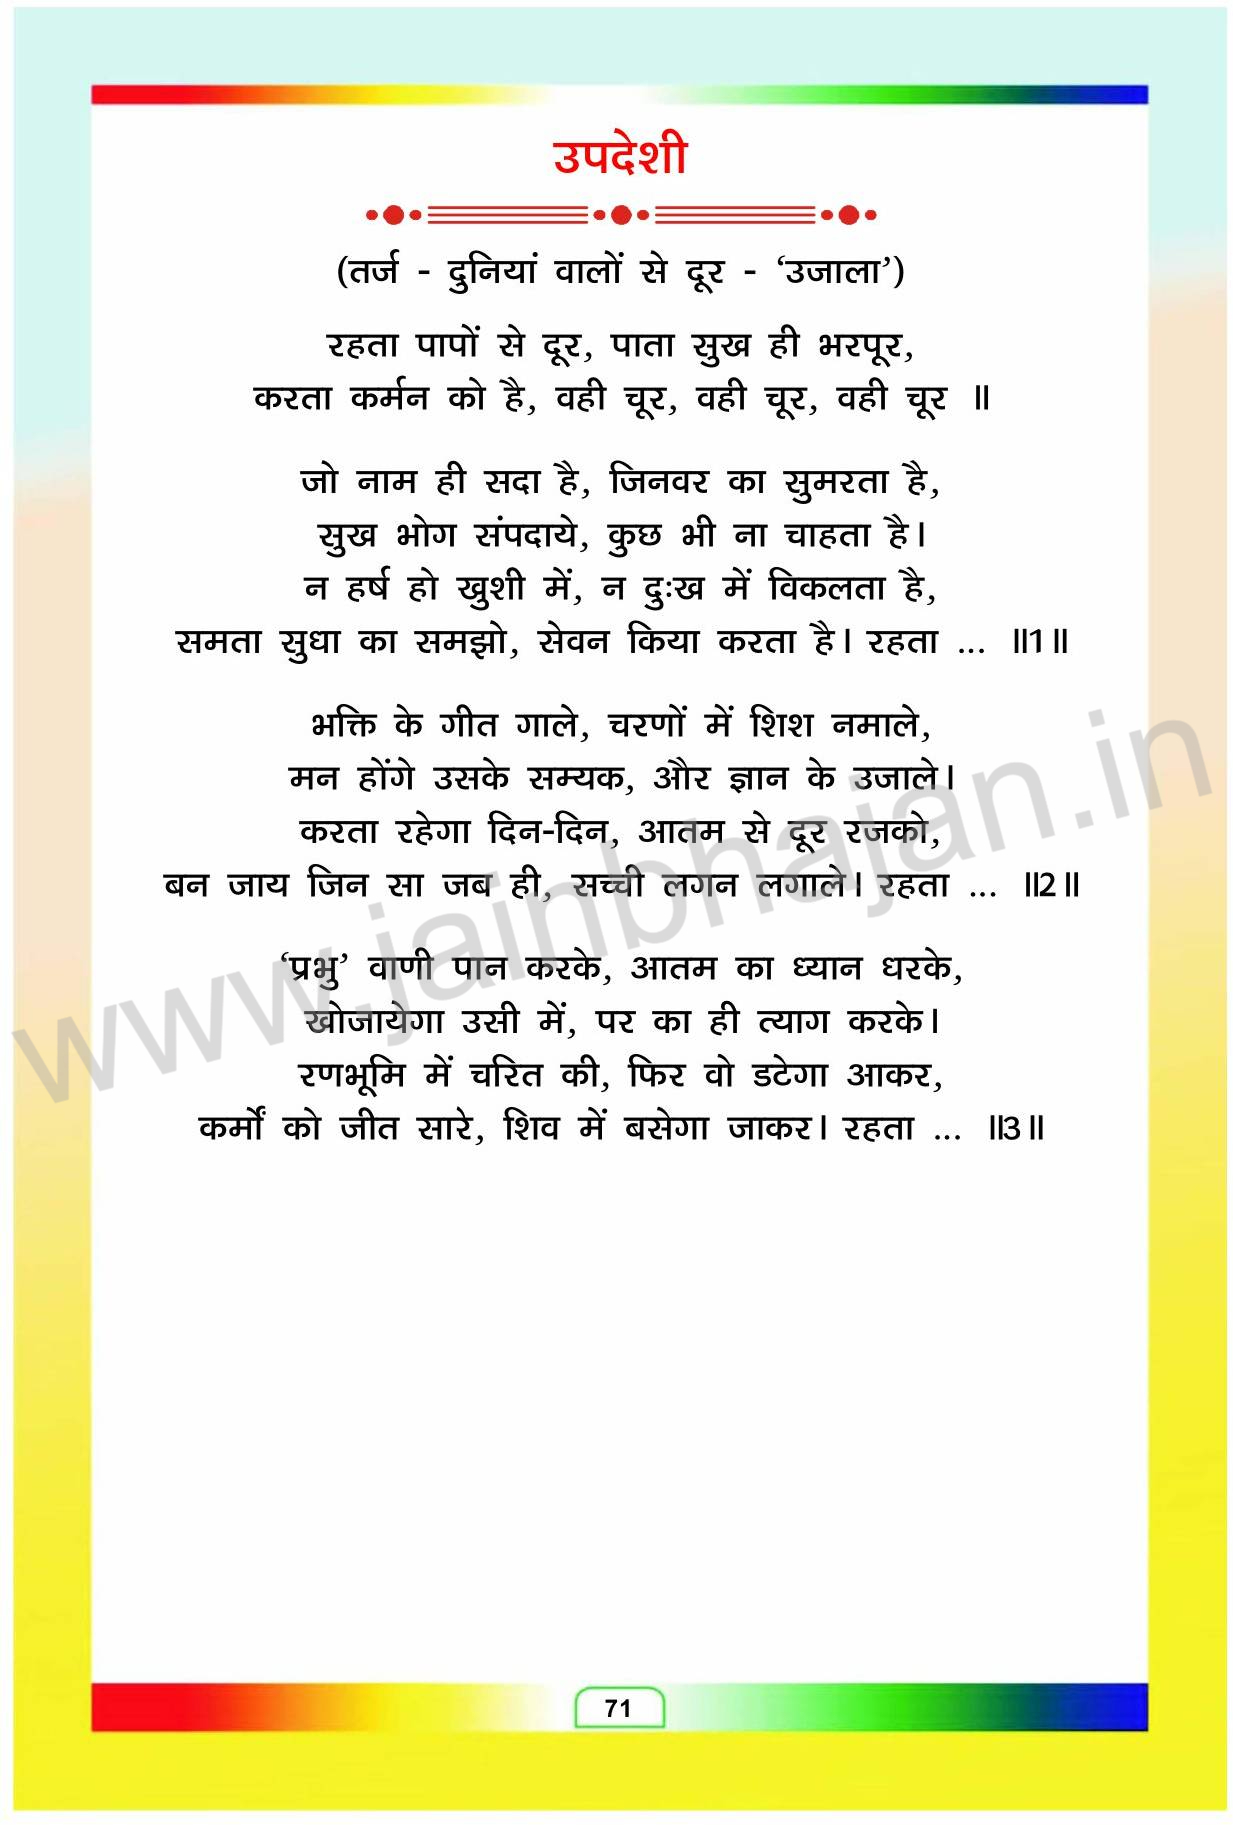 उपदेशी
(तर्ज - दुनियां वालों से दूर - ‘उजाला’)
रहता पापों से दूर, पाता सुख ही भरपूर,
करता कर्मन को है, वही चूर, वही चूर, वही चूर ॥
जो नाम ही सदा है, जिनवर का सुमरता है,
सुख भोग संपदाये, कुछ भी ना चाहता है।
न हर्ष हो खुशी में, न दुःख में विकलता है,
समता सुधा का समझो, सेवन किया करता है। रहता ... ॥1॥
भक्ति के गीत गाले, चरणों में शिश नमाले,
मन होंगे उसके सम्यक, और ज्ञान के उजाले।
करता रहेगा दिन-दिन, आतम से दूर रजको,
बन जाय जिन सा जब ही, सच्ची लगन लगाले। रहता ... ॥2॥
‘प्रभु’ वाणी पान करके, आतम का ध्यान धरके,
खोजायेगा उसी में, पर का ही त्याग करके।
रणभूमि में चरित की, फिर वो डटेगा आकर,
कर्मों को जीत सारे, शिव में बसेगा जाकर। रहता ... ॥3॥
www.jainbhajan.in
71